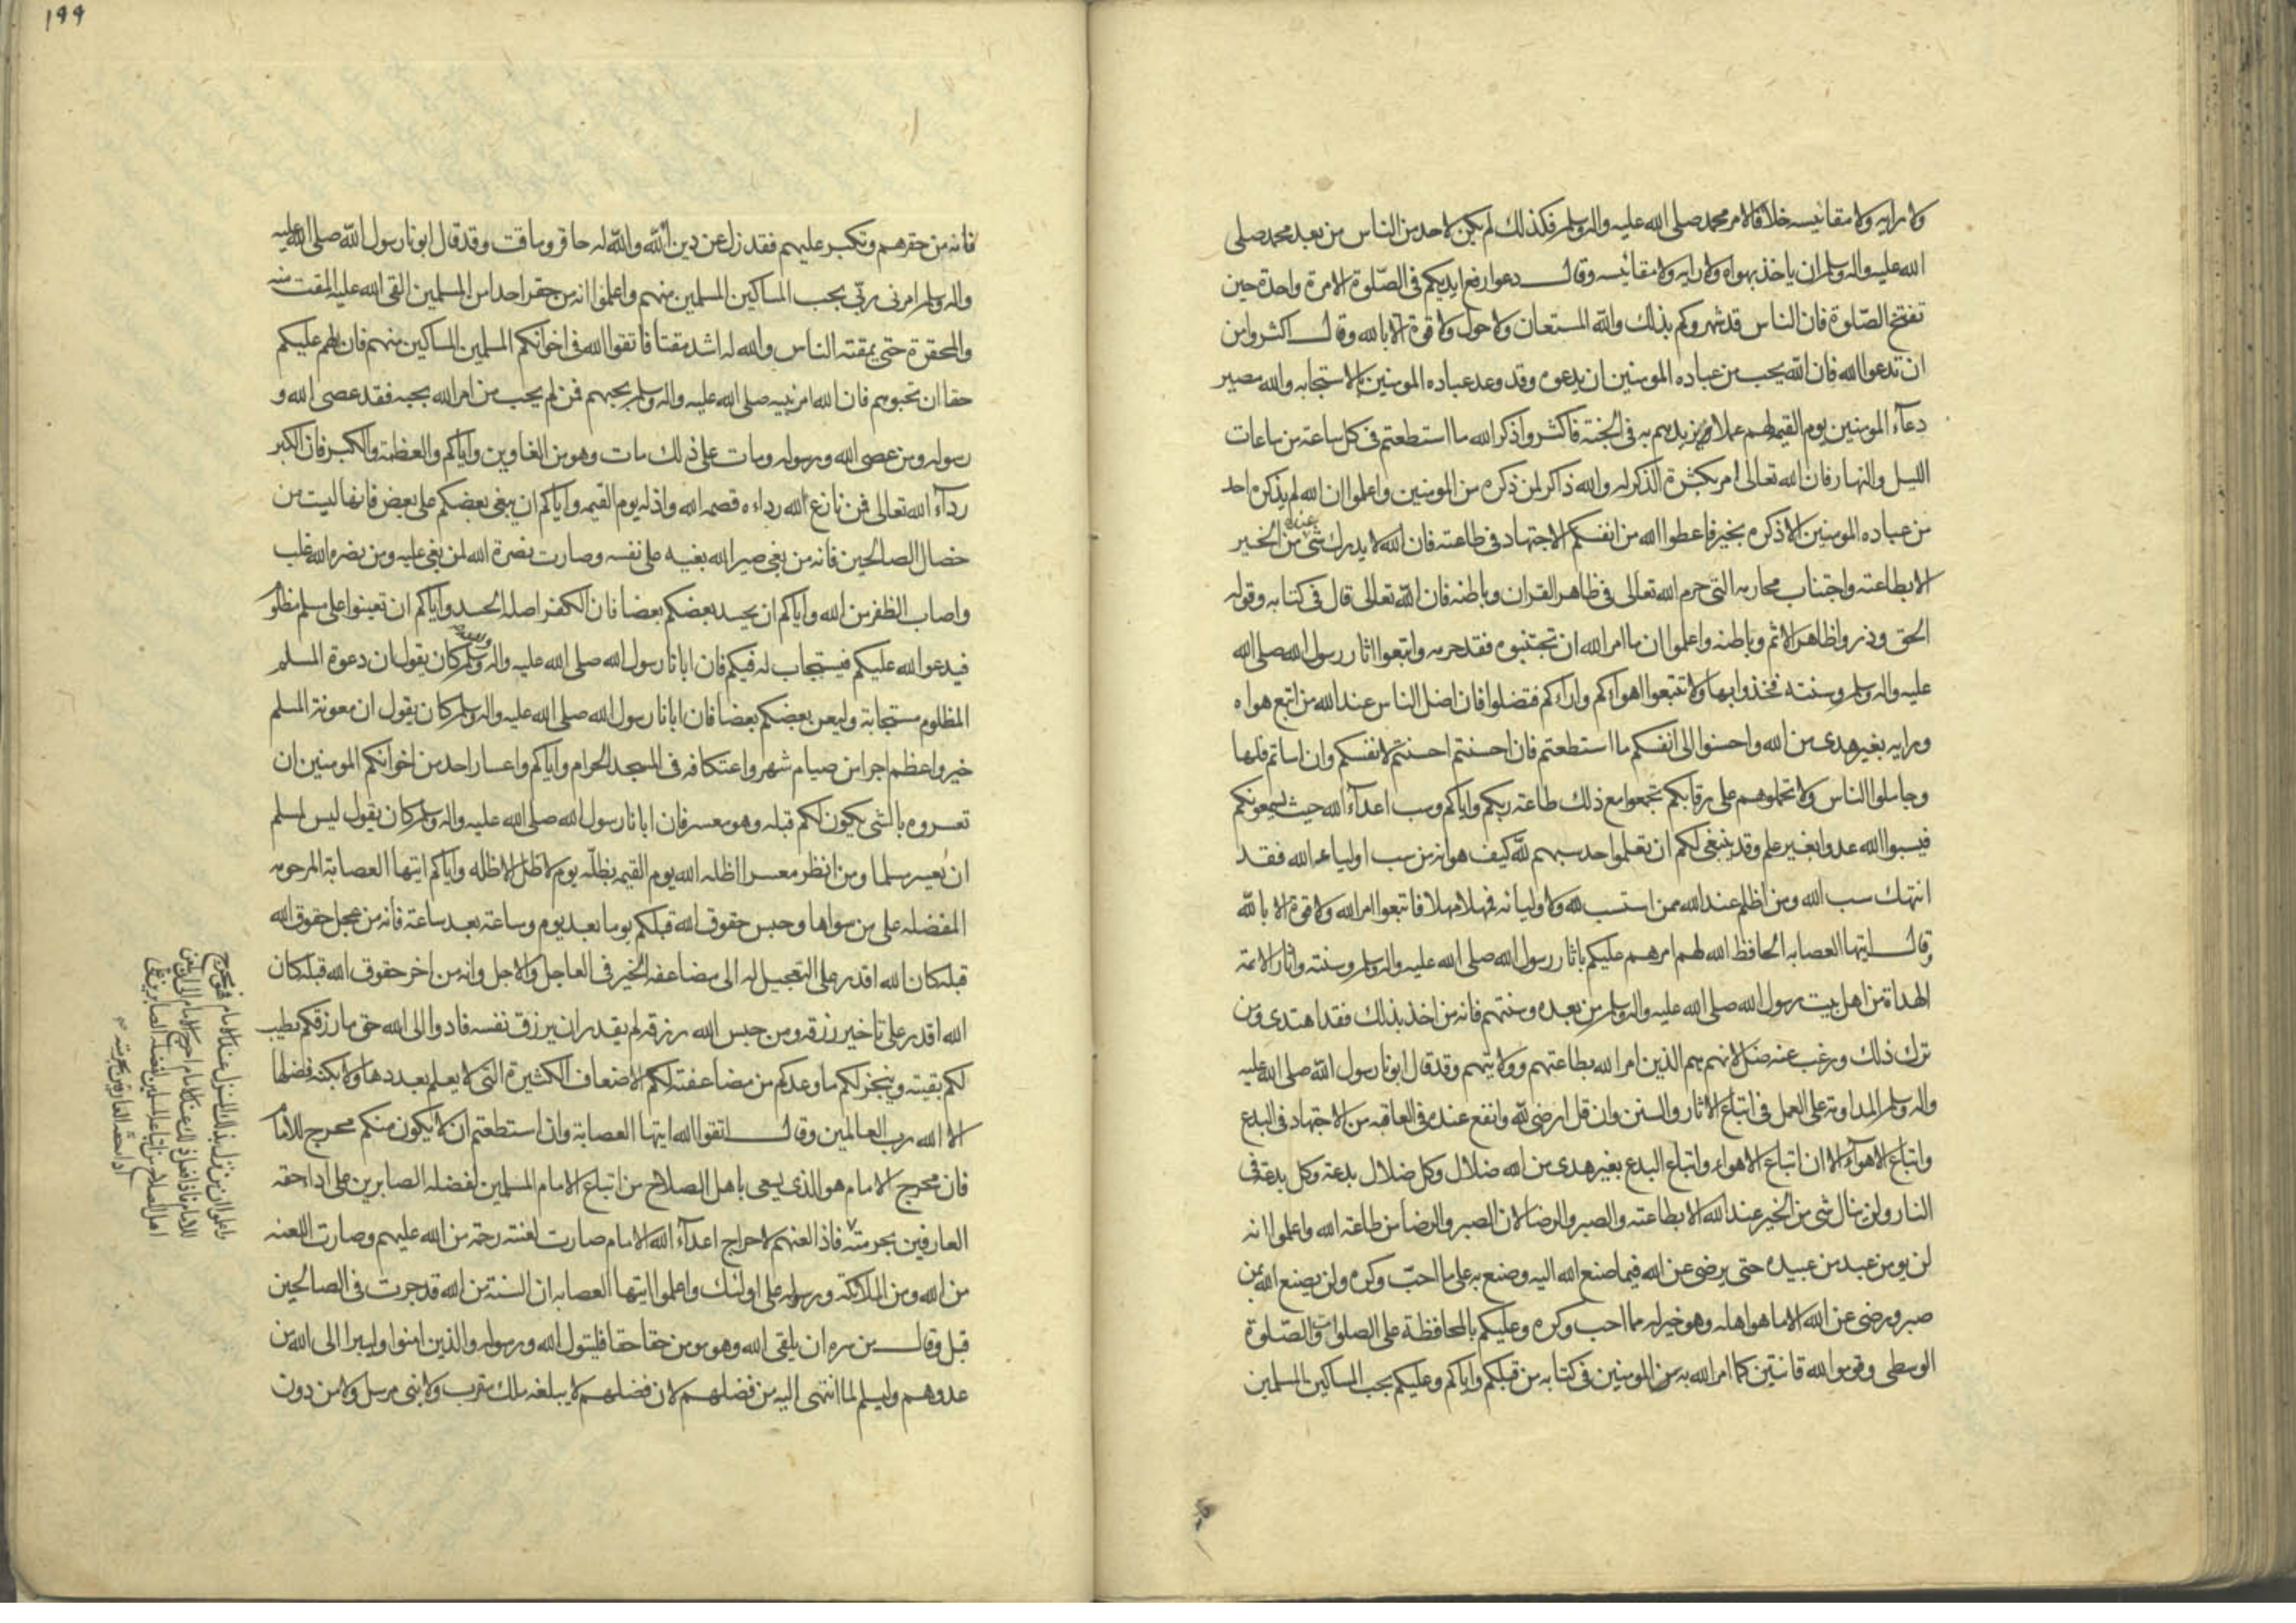 ولا رايه ولا مقائيسه خلافا لامر محمد صلى الله عليه واله وسلم فكذلك لم يكن لاحد من الناس من بعد محمد صلى
الله عليه واله وسلم ان ياخذ بهواه ولا رايه ولا مقائيسه وقال دعوا رفع ايديكم فى الصّلوة الا مرة واحدة حين
تفتتح الصّلوة فان الناس قد شهروكم بذلك والله المستعان ولا حول ولا قوة الا بالله وقال اكثروا من
ان تدعوا الله فان الله يحب من عباده المومنين ان يدعوه وقد وعد عباده المومنين بالاستجابه والله مصير
دعآء المومنين يوم القيمة لهم عملا يزيدهم به فى الجنة فاكثروا ذكر الله ما استطعتم فى كل ساعة من ساعات
الليل والنهار فان الله تعالى امر بكثرة الذكر له والله ذاكر لمن ذكره من المومنين واعلموا ان الله لم يذكره احد
من عباده المومنين الا ذكره بخير فاعطوا الله من انفسكم الاجتهاد فى طاعته فان الله لا يدرك شى من الخير
عنده
الا بطاعته واجتناب محارمه التى حرم الله تعالى فى ظاهر القران وباطنه فان الله تعالى قال فى كتابه وقوله
الحق وذروا ظاهر الاثم وباطنه واعلموا ان ما امر الله ان تجتنبوه فقد حرمه واتبعوا اثار رسول الله صلى الله
عليه واله وسلم وسنته فخذوا بها ولا تتبعوا اهوائكم وارائكم فتضلوا فان اضل الناس عند الله من اتبع هواه
ورايه بغير هدى من الله واحسنوا الى انفسكم ما استطعتم فان احسنتم احسنتم لانفسكم وان اساتم فلها
وجاملوا الناس ولا تحملوهم على رقابكم تجمعوا مع ذلك طاعة ربكم واياكم وسب اعدآء الله حيث يسمعونكم
فيسبوا الله عدوا بغير علم وقد ينبغى لكم ان تعلموا حد سبهم لله كيف هو انه من سب اولياء الله فقد
انتهك سب الله ومن اظلم عند الله ممن استسب لله ولاوليائه فمهلا مهلا فاتبعوا امر الله ولا قوة الا بالله
وقال ايتها العصابه الحافظ الله لهم امرهم عليكم باثار رسول الله صلى الله عليه واله وسلم وسنته واثار الائمة
الهداة من اهل بيت رسول الله صلى الله عليه واله وسلم من بعده وسنتهم فانه من اخذ بذلك فقد اهتدى ومن
ترك ذلك ورغب عنه ضل لانهم هم الذين امر الله بطاعتهم وولايتهم وقد قال ابونا رسول الله صلى الله عليه
واله وسلم المداومة على العمل فى اتباع الاثار والسنن وان قل ارضى لله وانفع عنده فى العاقبه من الاجتهاد فى البدع
واتباع الاهوآء الا ان اتباع الاهواء واتباع البدع بغير هدى من الله ضلال وكل ضلال بدعة وكل بدعة فى
النار ولن ينال شى من الخير عند الله الا بطاعته والصبر والرضا لان الصبر والرضا من طاعة الله واعلموا انه
لن يومن عبد من عبيده حتى يرضى عن الله فيما صنع الله اليه وصنع به على ما احبّ وكره ولن يصنع الله بمن
صبر ورضى عن الله الا ما هو اهله وهو خير له مما احب وكره وعليكم بالمحافظة على الصلوات والصّلوة
الوسطى وقوموا لله قانتين كما امر الله به المومنين فى كتابه من قبلكم واياكم وعليكم بحب المساكين المسلمين
١٩٩
فانه من حقرهم وتكبر عليهم فقد زل عن دين الله والله له حاقر وماقت وقد قال ابونا رسول الله صلى الله عليه
واله وسلم امرنى ربّى بحب المساكين المسلمين منهم واعلموا انه من حقر احدا من المسلمين القى الله عليه المقت منه
والمحقرة حتى يمقته الناس والله له اشد مقتا فاتقوا الله فى اخوانكم المسلمين المساكين منهم فان لهم عليكم
حقا ان تحبوهم فان الله امر نبيه صلى الله عليه واله وسلم بحبهم فمن لم يحب من امر الله بحبه فقد عصى الله و
رسوله ومن عصى الله ورسوله ومات على ذلك مات وهو من الغاوين واياكم والعظمة والكبر فان الكبر
ردآء الله تعالى فمن نازع الله رداءه قصمه الله واذله يوم القيمه واياكم ان يبغى بعضكم على بعض فانها ليست من
خصال الصالحين فانه من بغى صير الله بغيه على نفسه وصارت نصرة الله لمن بغى عليه ومن نصره الله غلب
واصاب الظفر من الله واياكم ان يحسد بعضكم بعضا فان الكفر اصله الحسد واياكم ان تعينوا على مسلم مظلوم
فيدعو الله عليكم فيستجاب له فيكم فان ابانا رسول الله صلى الله عليه واله وسلم كان يقول ان دعوة المسلم
المظلوم مستجابة وليعن بعضكم بعضا فان ابانا رسول الله صلى الله عليه واله وسلم كان يقول ان معونة المسلم
خير واعظم اجرا من صيام شهر واعتكافه فى المسجد الحرام واياكم واعسار احد من اخوانكم المومنين ان
تعسروه بالشى يكون لكم قبله وهو معسر فان ابانا رسول الله صلى الله عليه واله وسلم كان يقول ليس لمسلم
ان يعسر مسلما ومن انظر معسرا اظله الله يوم القيمه بظلّه يوم لا ظل الا ظله واياكم ايتها العصابة المرحومه
المفضله على من سواها وحبس حقوق الله قبلكم يوما بعد يوم وساعة بعد ساعة فانه من عجل حقوق الله
قبله كان الله اقدر على التعجيل له الى مضاعفة الخير فى العاجل والاجل وانه من اخر حقوق الله قبله كان
الله اقدر على تاخير رزقه ومن حبس الله رزقه لم يقدر ان يرزق نفسه فادوا الى الله حق ما رزقكم يطيب
لكم بقيته وينجز لكم ما وعدكم من مضاعفته لكم الاضعاف الكثيرة التى لا يعلم بعددها ولا بكنه فضلها
الا الله رب العالمين وقال اتقوا الله ايتها العصابة وان استطعتم ان لا يكون منكم محرج للامام
فان محرج الامام هو الذى يسعى باهل الصلاح من اتباع الامام المسلمين لفضله الصابرين على اداء حقه
العارفين بحرمته فاذا لعنهم لاحراج اعدآء الله الامام صارت لعنته رحمة من الله عليهم وصارت اللعنه
من الله ومن الملائكة ورسوله على اولئك واعلموا ايتها العصابه ان السنة من الله قد جرت فى الصالحين
قبل وقال من سره ان يلقى الله وهو مومن حقا حقا فليتول الله ورسوله والذين امنوا وليبرا الى الله من
عدوهم وليسلم لما انتهى اليه من فضلهم لان فضلهم لا يبلغه ملك مقرب ولا نبى مرسل ولا من دون
واعلموا ان من نزل بذلك المنزل عند الامام فهو محرج
للامام فاذا فعل ذلك عند الامام احرج الامام الى ان يلعن
اهل الصلاح من اتباعه المسلمين لفضله الصابرين على
اداء حقه العارفين بحرمته